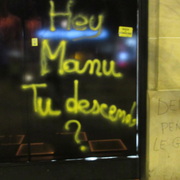 Hey
Manu
Tu descends
?
LE